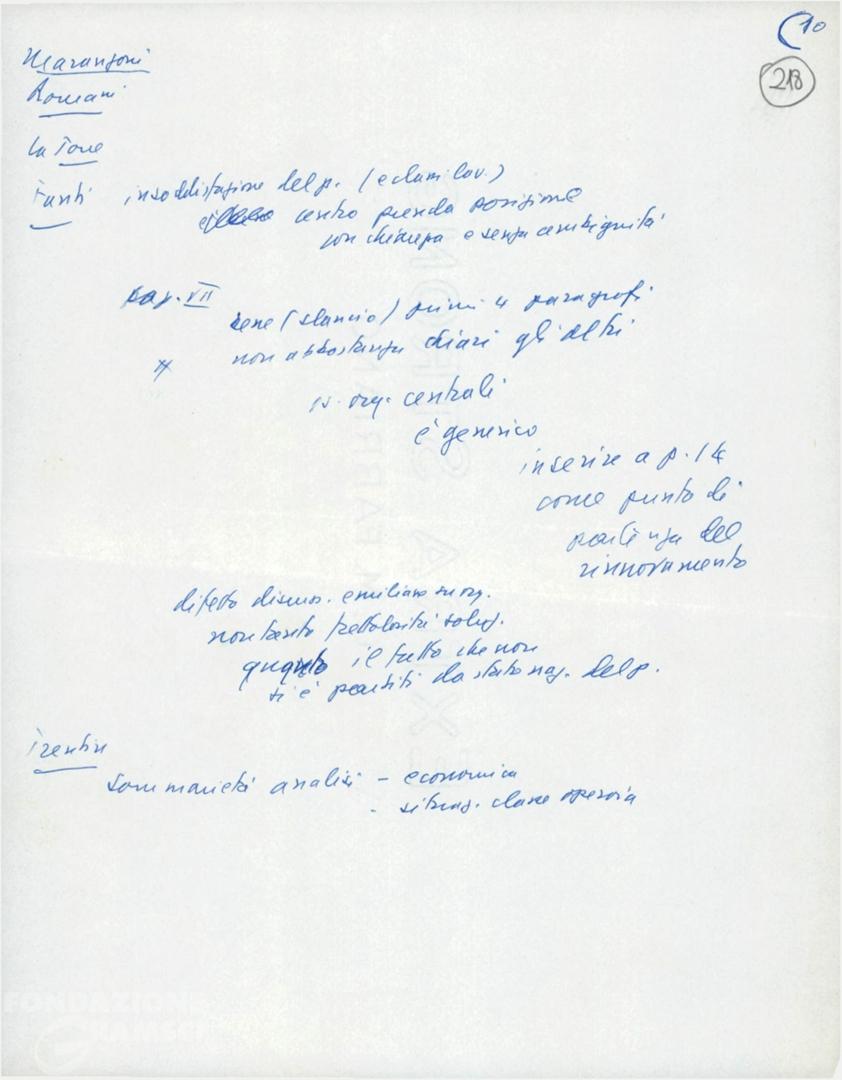 10
218
Marangoni
Romani
La Torre
Fanti insoddisfazione del p. (e clam. lav.)
centro prenda posizione
con chiarezza e senza ambiguità
cap. VII
bene (slancio) primi 4 paragrafi
non abbastanza chiari gli altri
15. org. centrali
è generico
inserire a p. 14
come punto di
partenza del
rinnovamento
difetto discuss. emiliana su org.
non tanto frettolosità soluz.
quanto il fatto che non
si è partiti da stato naz. del p.
Trentin
sommarietà analisi - economica
- situaz. classe operaia
FONDAZIONE
GRAMSCI